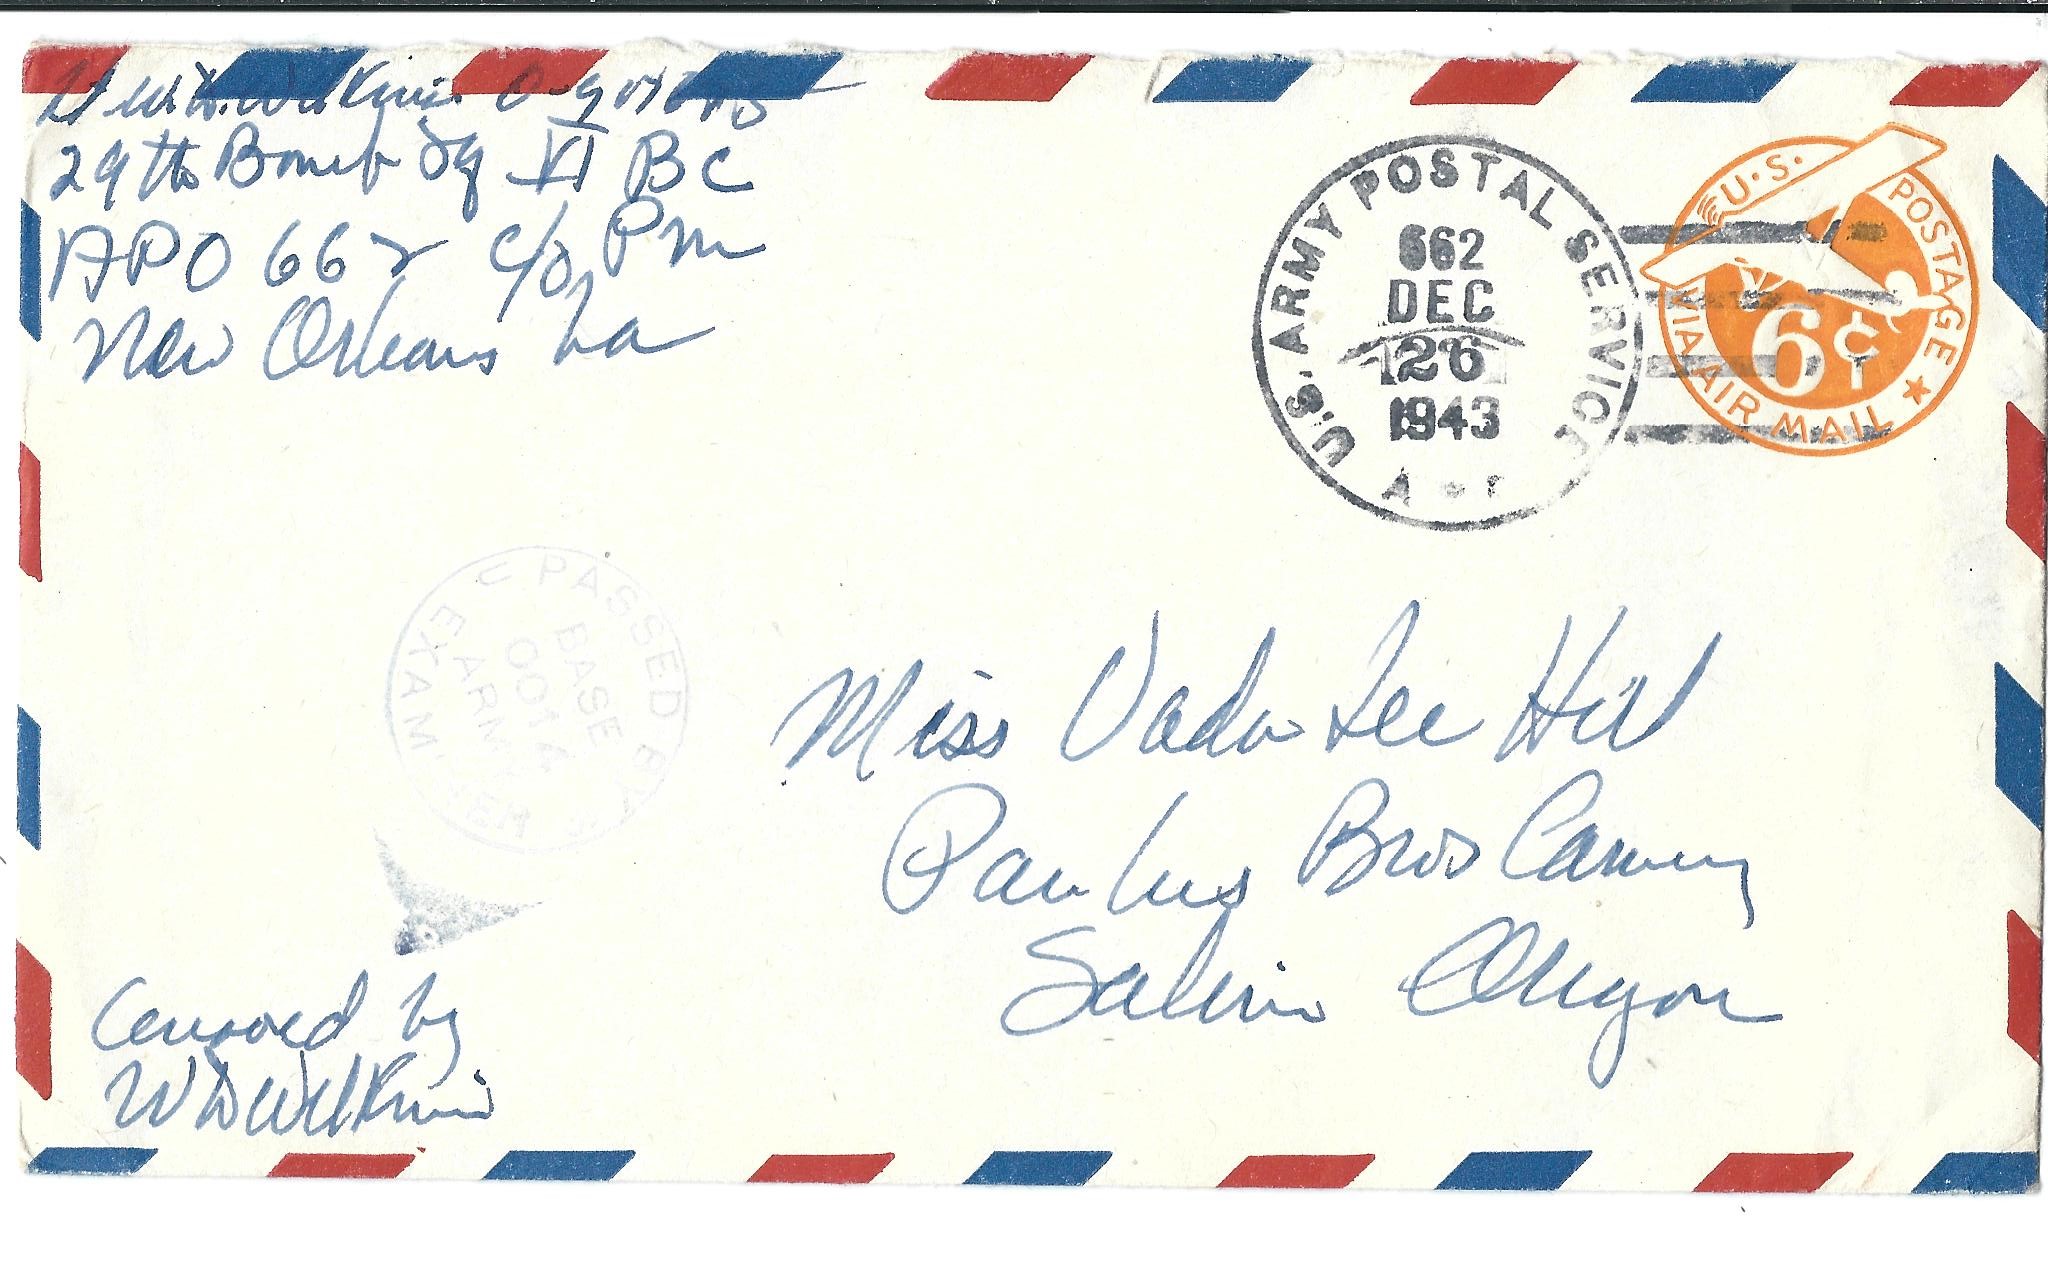 Lt W.D. Wilkins
29th Bomb Sq VI BC
APO 662 c/o PM
New Orleans La
U.S. ARMY POSTAL SERVICE
662
DEC
26
1943
A
U.S. POSTAGE
6¢
VIA AIR MAIL
PASSED BY
BASE
0014
ARMY
EXAMINER
Miss Vada Lee Hill
Paulus Bros Cannery
Salem Oregon
Censored by
WD Wilkins